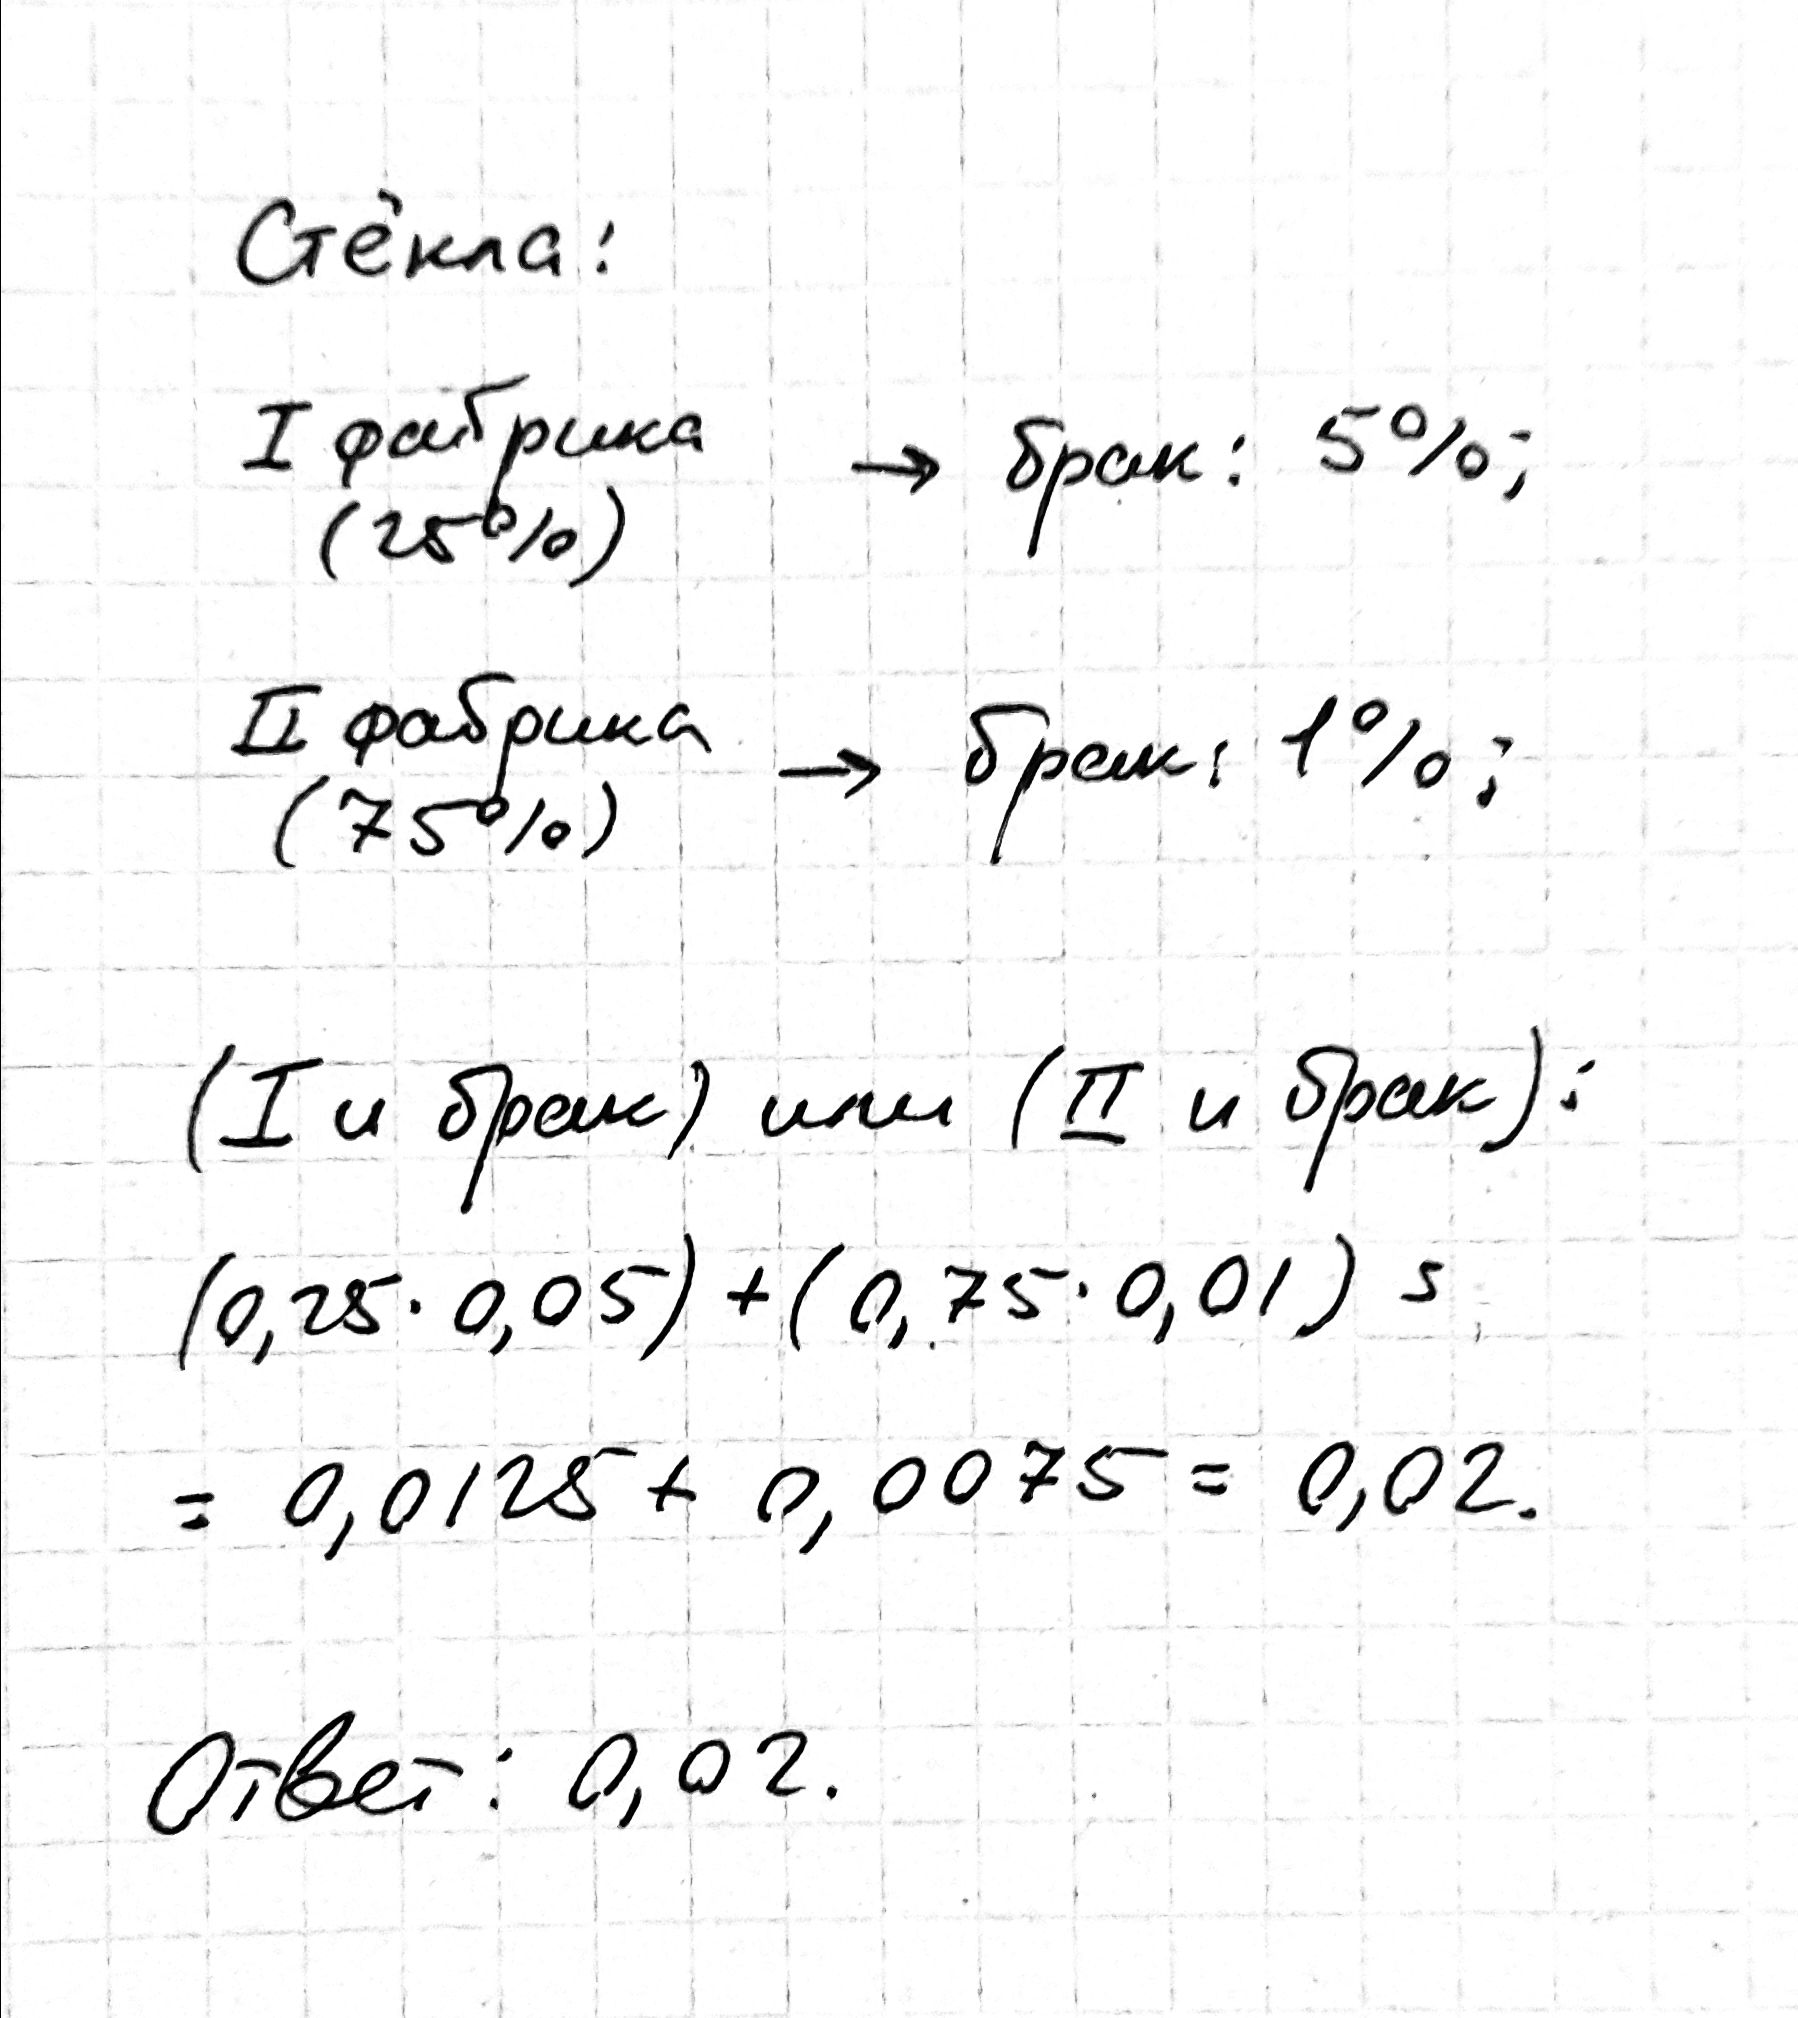 Стёкла:
I фабрика → брак: 5%;
(25%)
II фабрика → брак: 1%;
(75%)
(I и брак) или (II и брак):
(0,25·0,05)+(0,75·0,01) =
= 0,0125 + 0,0075 = 0,02.
Ответ: 0,02.